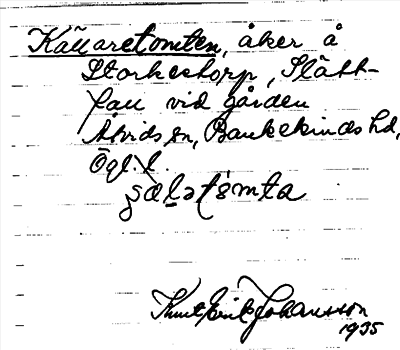 Källaretomten, åker å
Storkestorp, Slätt-
fall vid gården
Åtvids sn, Bankekinds hd,
Ögl. l.
Knut Erik Johansson
1935